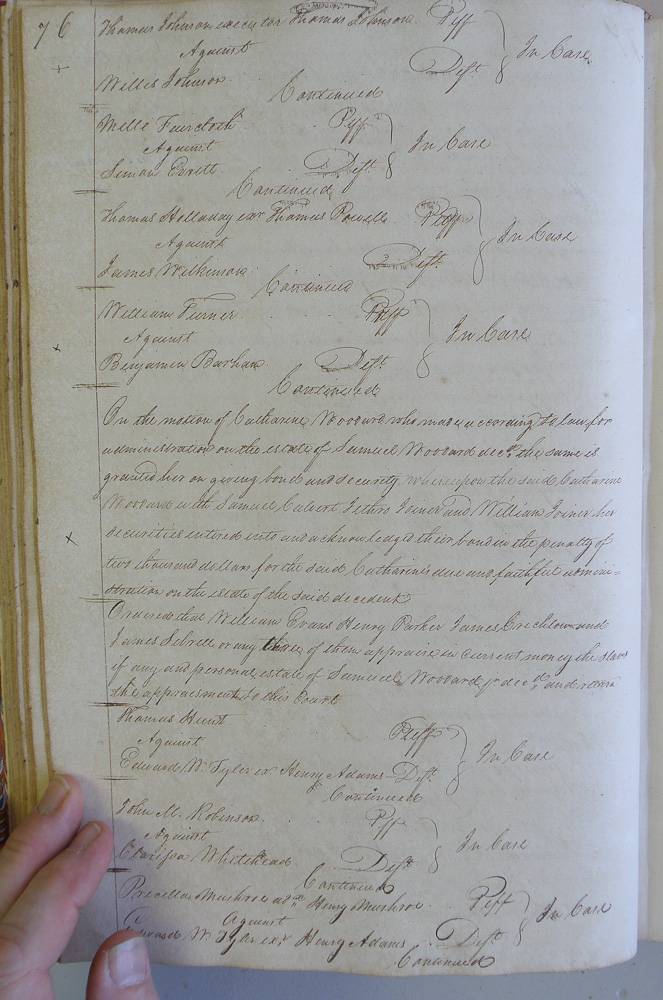 76
Thomas Johnson executor Thomas Johnson Plff
Against In Case
Willis Johnson Deft
Continued
Mills Faircloth Plff
Against In Case
Simon Everett Deft
Continued
Thomas Holladay exr Thomas Powell Plff
Against In Case
James Wilkinson Deft
Continued
William Turner Plff
Against In Case
Benjamin Barham Deft
Continued
On the motion of Catharine Woodard who made according to law for
administration on the estate of Samuel Woodard decd. the same is
granted her on giving bond and security whereupon the said Catharine
Woodard with Samuel Calvert Jethro Joiner and William Joiner her
securities entered into and acknowledged their bond in the penalty of
two thousand dollars for the said Catharines due and faithful admini-
stration on the estate of the said decedent
Ordered that William Evans Henry Parker James Crichlow and
James Sebrell or any three of them appraise in current money the slaves
if any and personal estate of Samuel Woodard decd. and return
the appraisement to this Court
Thomas Hunt Plff
Against In Case
Edward W. Tyler ex Henry Adams Deft.
Continued
John M. Robinson Plff
Against In Case
Clarissa Whitehead Deft
Continued
Henry Mushroe Plff
Against In Case
Edward W. Tyler exr Henry Adams Deft
Continued